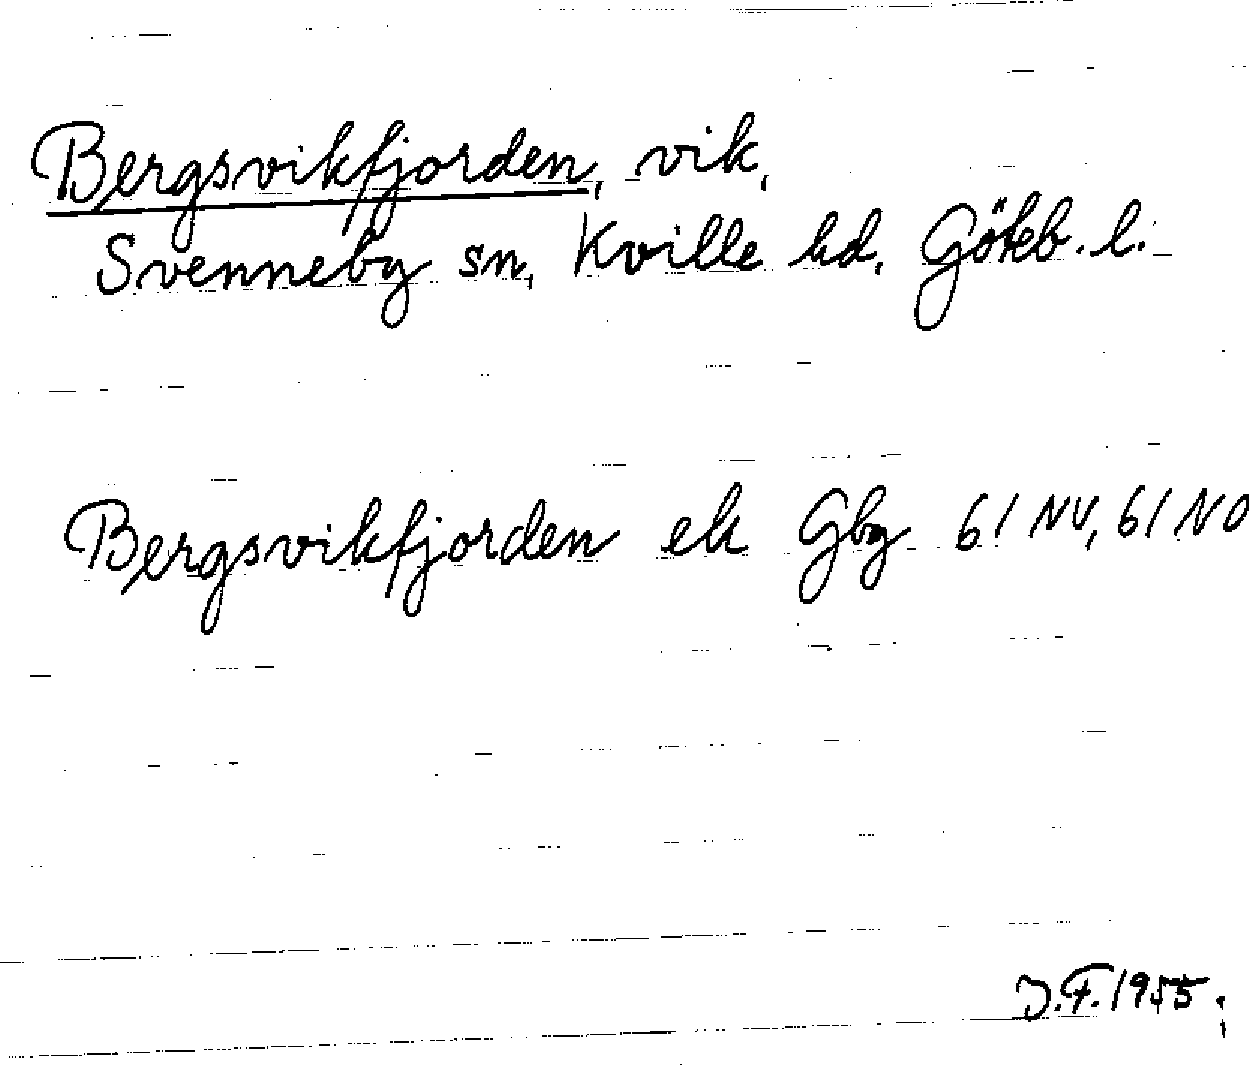 Bergsvikfjorden, vik,
Svenneby sn, Kville hd, Göteb. l.
Bergsvikfjorden ek Gbg 61 NV, 61 NO
J.F. 1955.